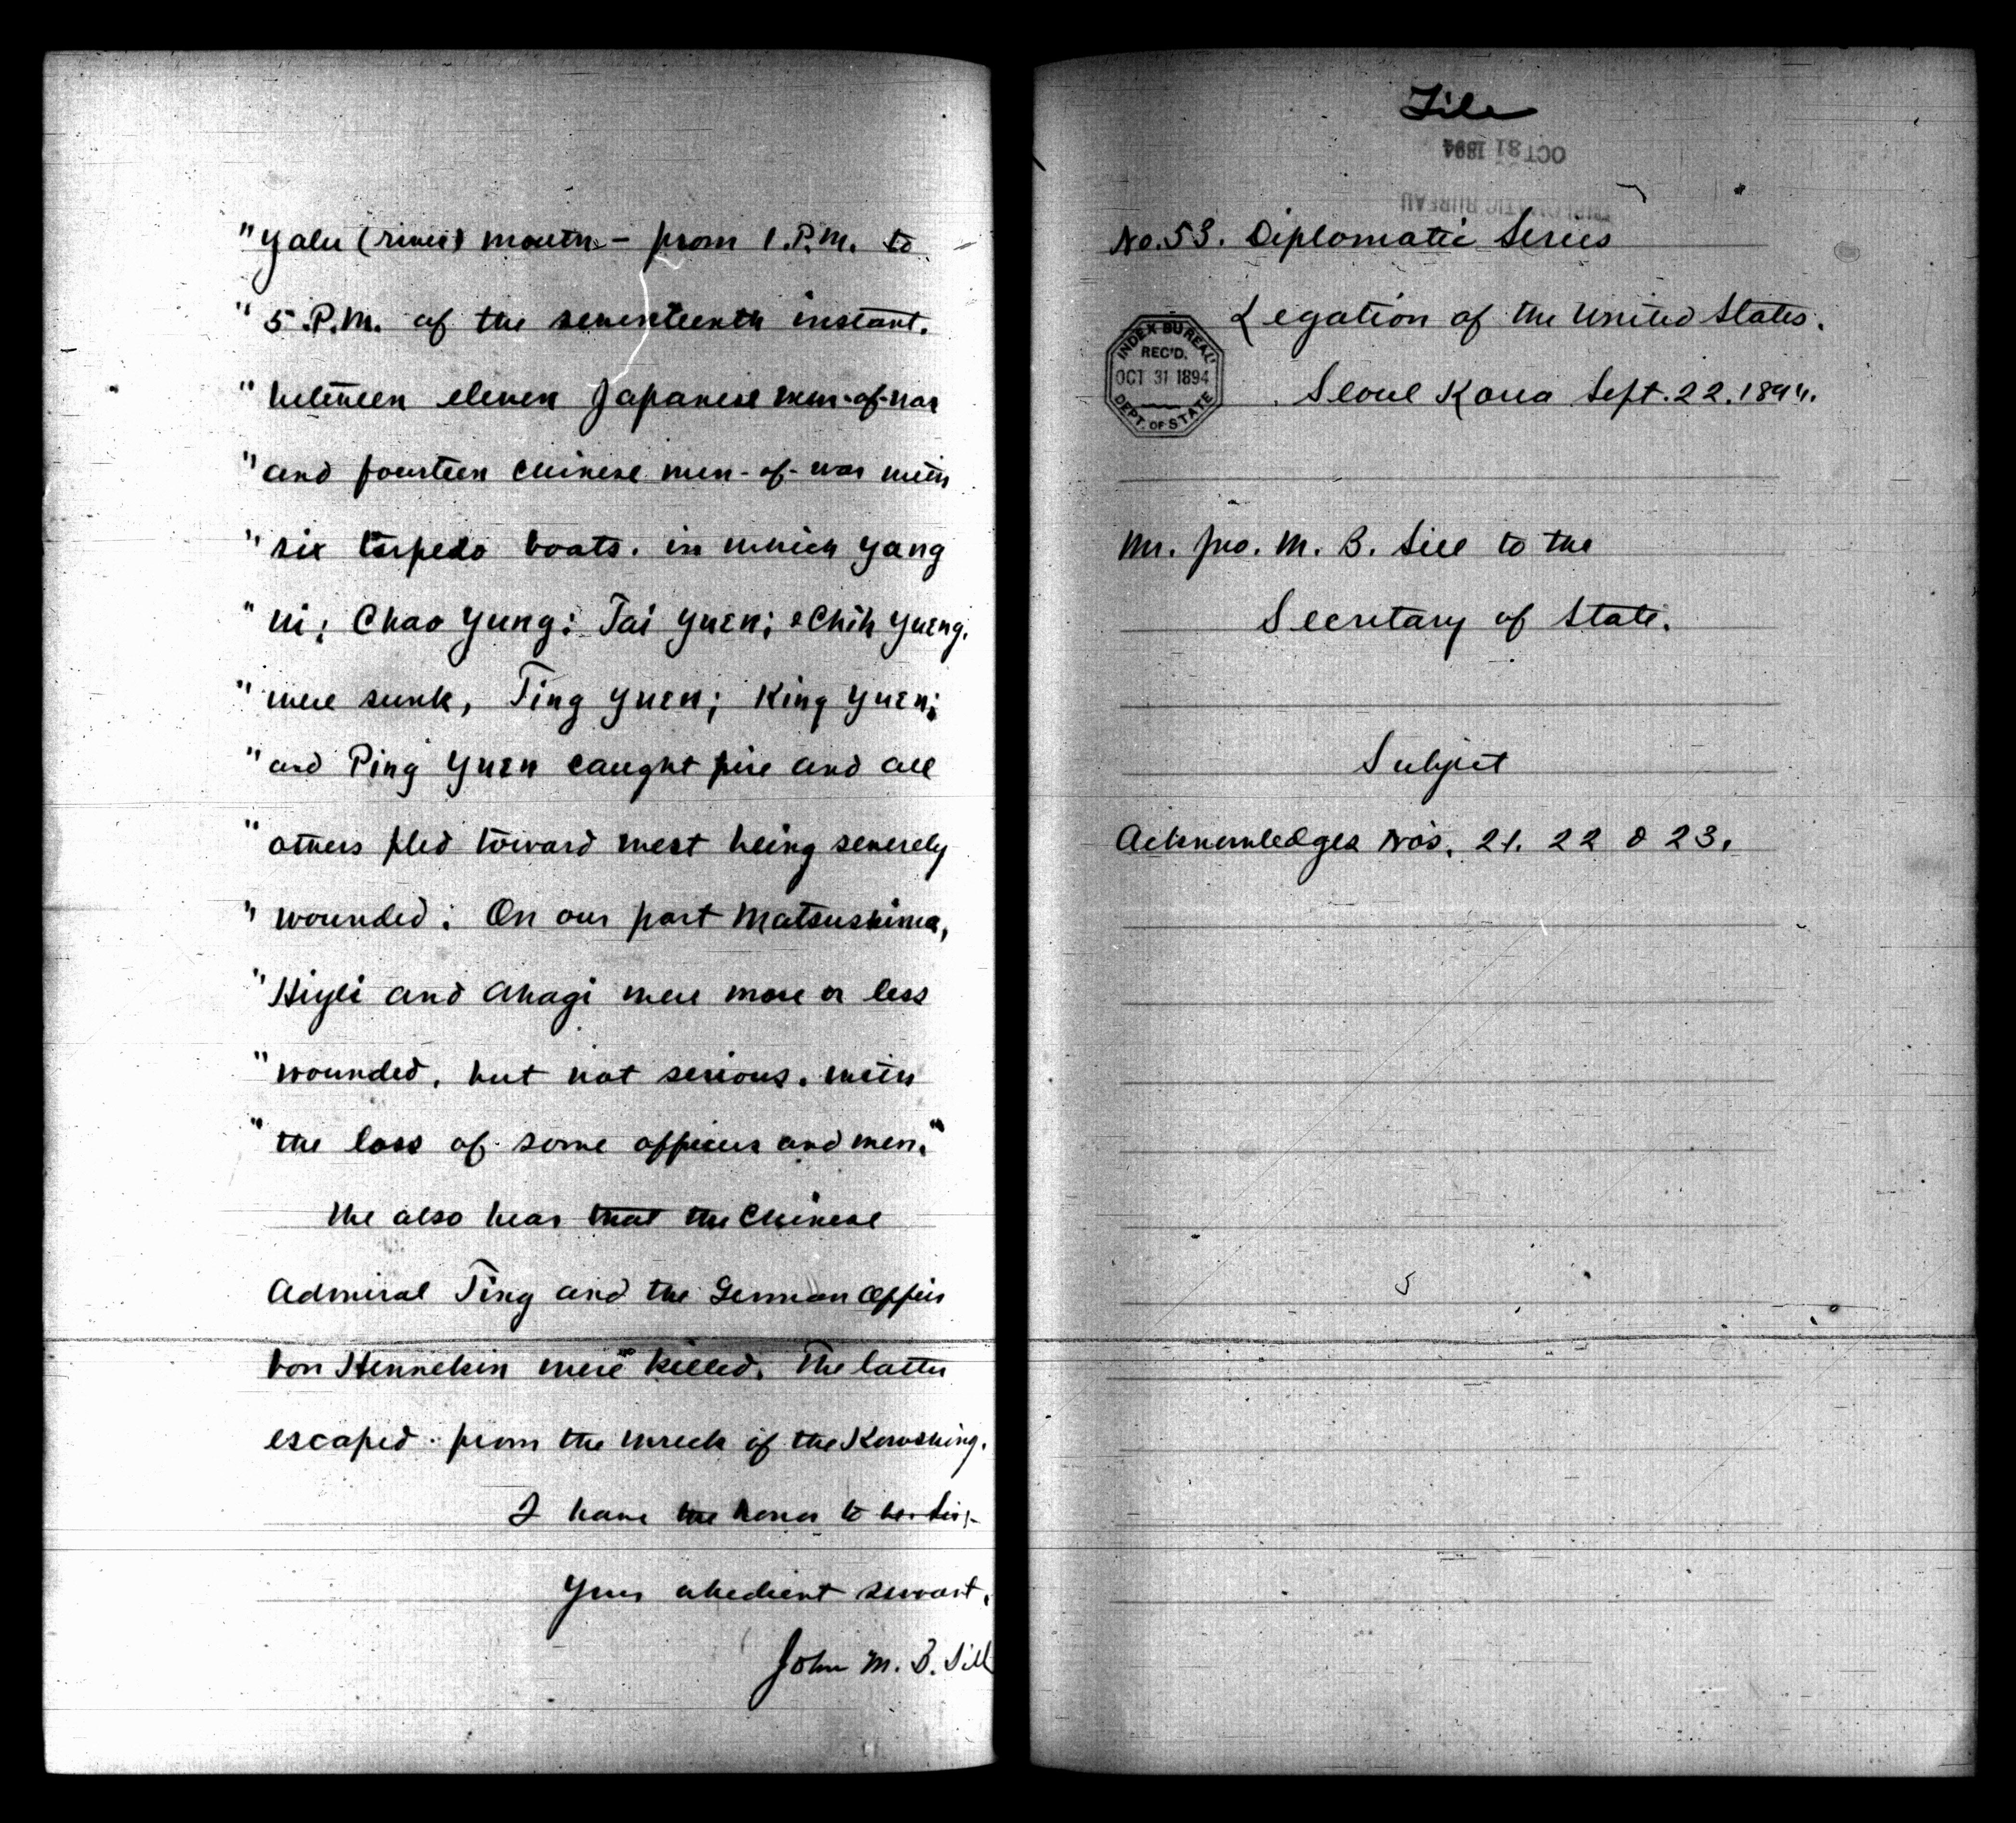 "Yalu (river) mouth - from 1. P.M. to
"5. P.M. of the seventeenth instant.
"between eleven Japanese men-of-war
"and fourteen Chinese men-of-war with
"six torpedo boats. in which Yang
"Wi; Chao Yung; Tai Yuen; & Chih Yueng.
"were sunk, Ting Yuen; King Yuen;
"and Ping Yuen caught fire and all
"others fled toward west being severely
"wounded: On our part Matsushima,
"Hiyei and Akagi were more or less
"wounded, but not serious. with
"the loss of some officers and men."
We also hear that the Chinese
Admiral Ting and the German Officer
von Hennekin were killed. The latter
escaped from the wreck of the Kowshing.
I have the honor to be: Sir;-
Your obedient servant,
John M. B. Sill
File
OCT 31 1894
DIPLOMATIC BUREAU
No. 53. Diplomatic Series
Legation of the United States.
Seoul Korea Sept. 22. 1894.
INDEX BUREAU
REC'D.
OCT 31 1894
DEPT. OF STATE
Mr. Jno. M. B. Sill to the
Secretary of State.
Subject
Acknowledges Nos. 21. 22 & 23.